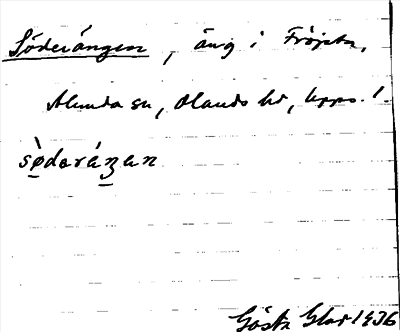 Söderängen, äng i Fröjsta,
Alunda sn, Olands hd, Upps. l.
sø̀daráʒan
Gösta Glas 1936